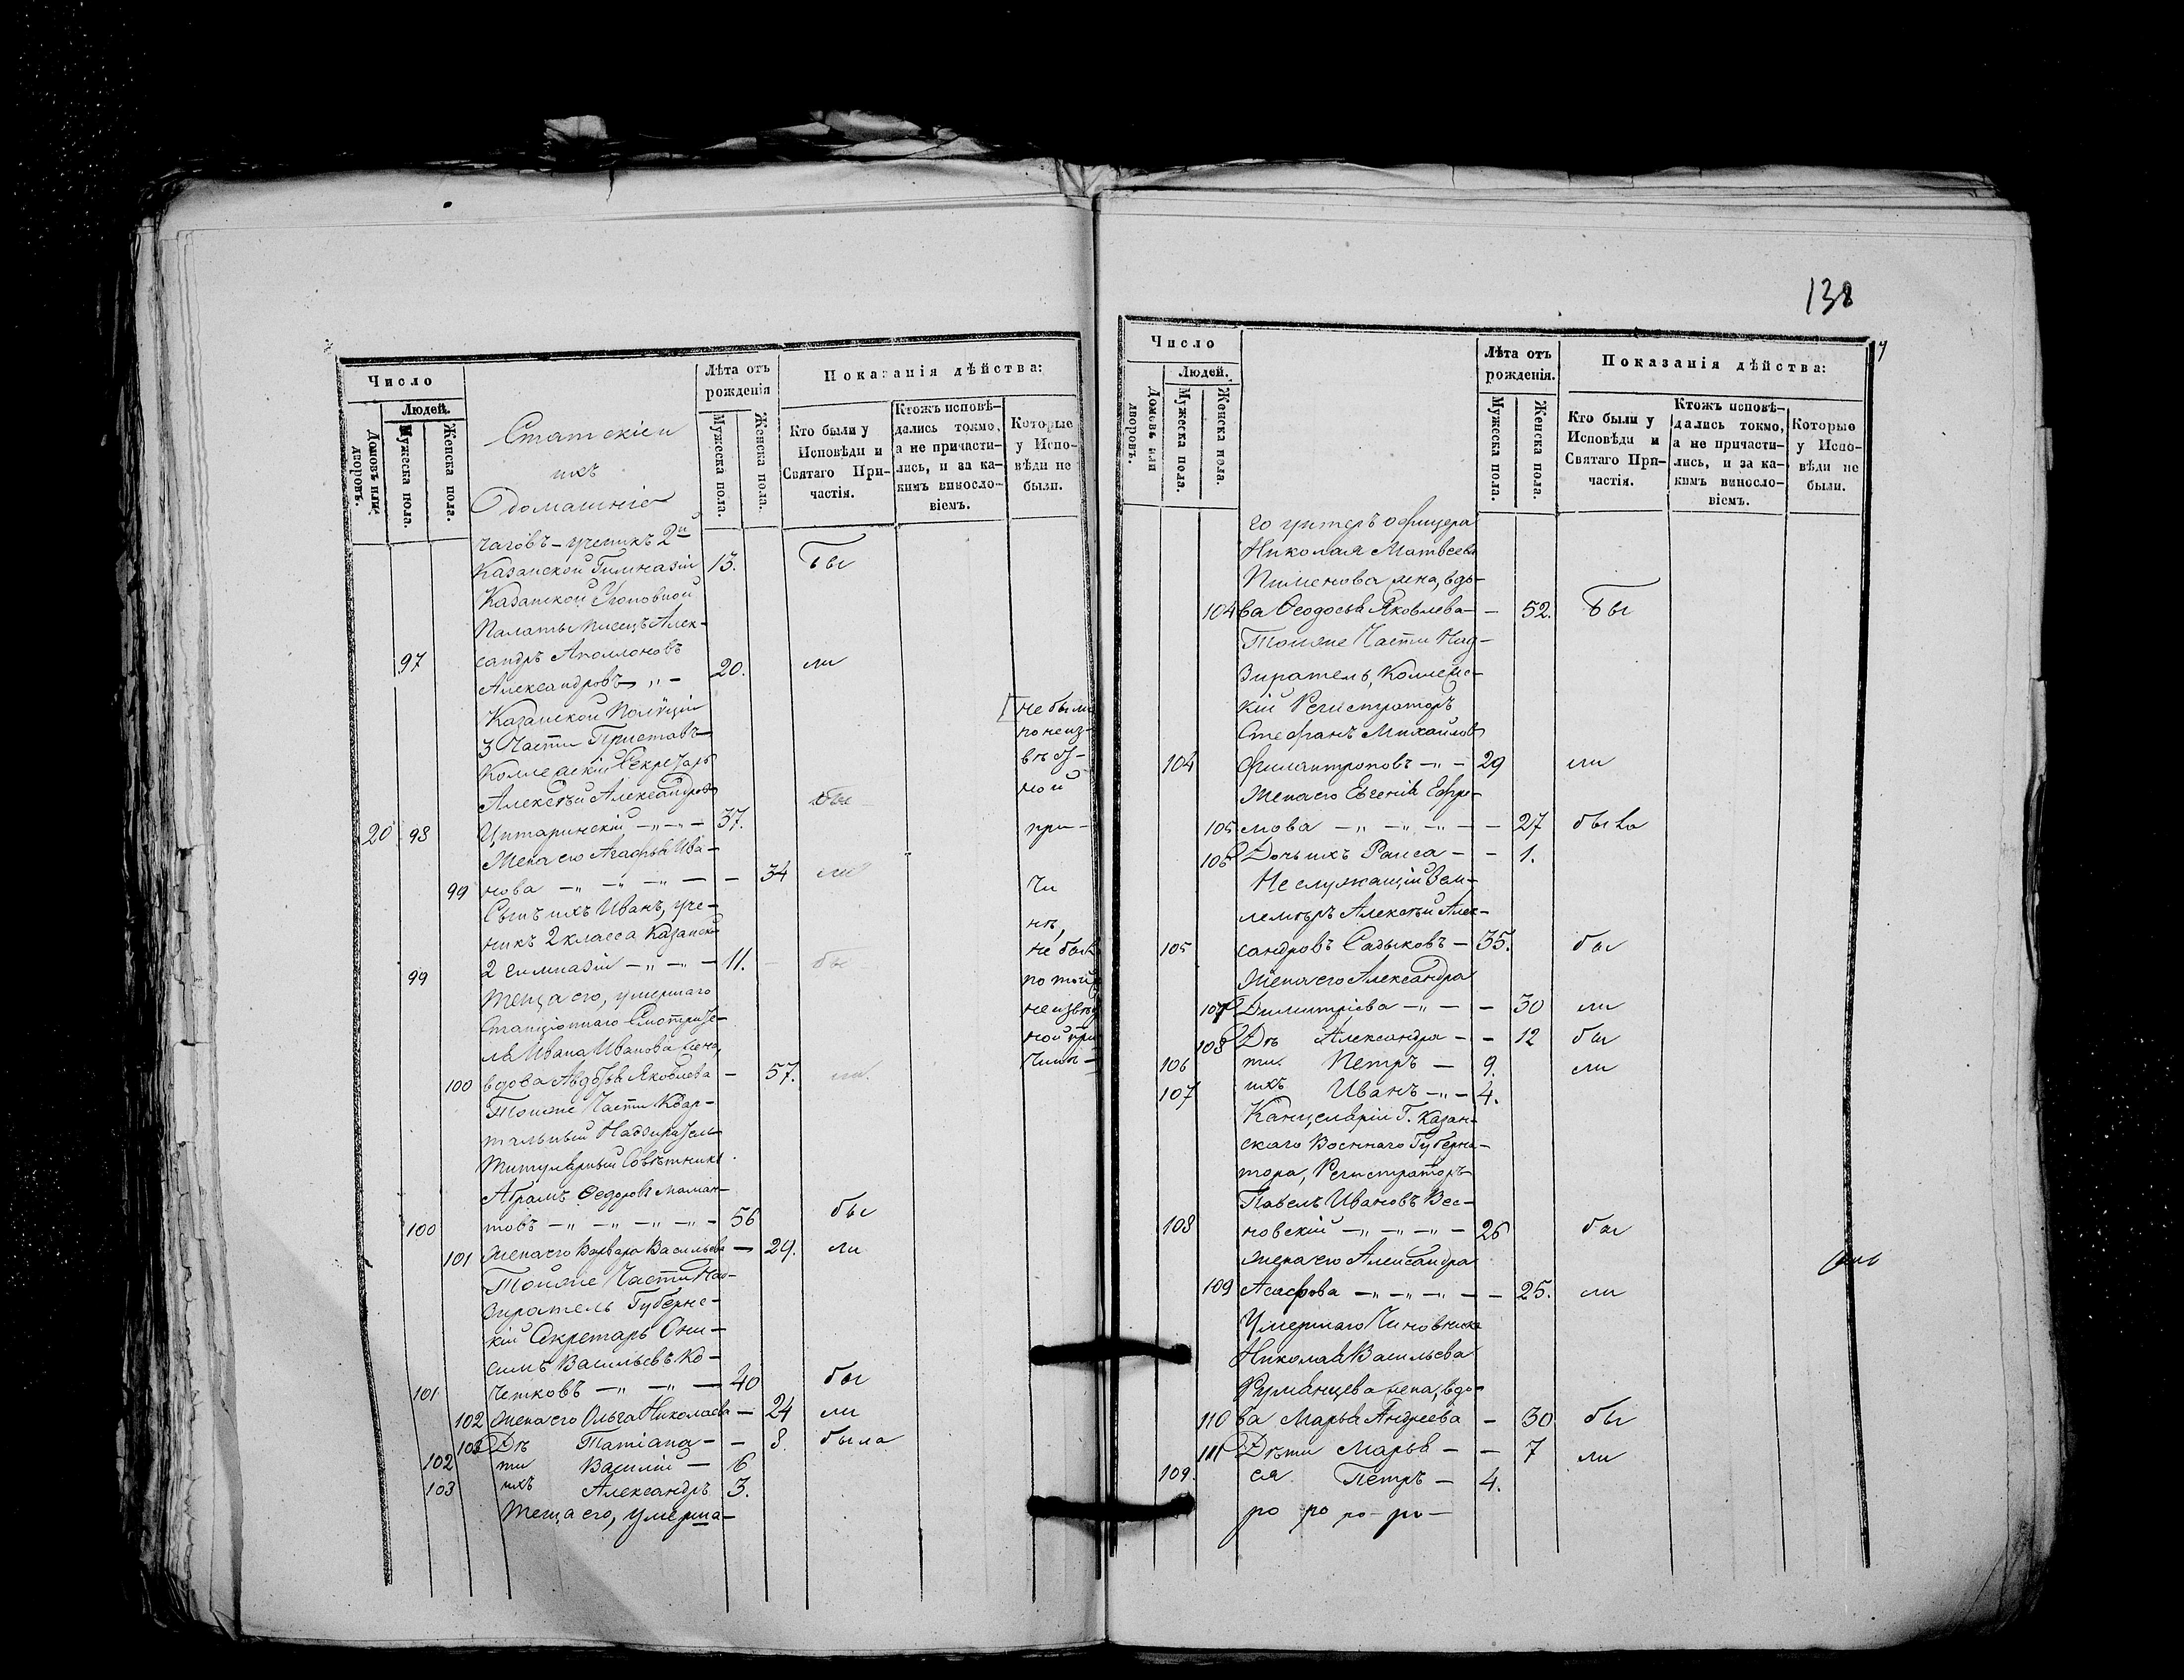 138
Число
Людей.
Домовъ или дворовъ.
Мужеска пола.
Женска пола.
Статскіе и
ихъ
домашніе
Лѣта отъ рожденія
Мужеска пола.
Женска пола.
Показанія дѣйства:
Кто были у Исповѣди и Святаго Причастія.
Ктожъ исповѣдались токмо, а не причастились, и за какимъ винословіемъ.
Которые у Исповѣди не были.
чаговъ – ученикъ 2й
Казанской Гимназіи 13. бы
Казанской
Палаты Писецъ Алек-
97 сандръ Аполлоновъ ли
Александровъ – „ – 20.
Казанской Полиціи не были
3 Части Приставъ по неиз-
Коллежскій Секретарь вѣст-
Алексѣй Александровъ бы ной
20 98 Цитаринскій – „ – „ – 37. при-
Жена его Агафья Ива-
99 нова – „ – „ – „ – – 34 ли чи
Сынъ ихъ Иванъ, уче- нѣ,
никъ 2 класса Казанской не былъ
99 2 гимназіи – „ – „ – 11. – бы по той
Теща его, умершаго неизвѣст
Станціоннаго Смотрите- ной при
ля Ивана Иванова жена, чинѣ –
100 вдова Авдотья Яковлева – 57. ли.
Тойже Части Квар-
тальный Надзиратель
Титулярный Совѣтникъ
Абрамъ Ѳедоровъ Маман-
100 товъ – „ – „ – „ – „ – 56 бы
101 Жена его Варвара Васильева – 29. ли
Тойже Части Над-
зиратель Губернс-
кій Секретарь Они-
симъ Васильевъ Ко-
101 четковъ – „ – „ – 40 бы
102 Жена его Ольга Николаева – 24 ли
103 Дѣ Татіана – – 8. была
102 ти Василій – 6
103 ихъ Александръ 3.
Теща его, умерша-
Число
Людей.
Домовъ или дворовъ.
Мужеска пола.
Женска пола.
Лѣта отъ рожденія.
Мужеска пола.
Женска пола.
Показанія дѣйства:
Кто были у Исповѣди и Святаго Причастія.
Ктожъ исповѣдались токмо, а не причастились, и за какимъ винословіемъ.
Которые у Исповѣди не были.
го унтеръ офицера
Николая Матвеева
Пименова жена, вдо-
104 ва Ѳеодосья Яковлева – – 52. бы
Тойже Части Над-
зиратель, Коллежс-
кій Регистраторъ
Стефанъ Михайловъ
104 Филантроповъ – „ – 29 ли
Жена его Евгенія Ефре-
105 мова – „ – „ – „ – – 27 была
106 Дочь ихъ Раиса – – 1.
Не служащій Зем-
лемѣръ Алексѣй Алек-
105 сандровъ Садыковъ – 35. бы
Жена его Александра
107 Димитріева – „ – – 30 ли
108 Дѣ Александра – – 12 бы
106 ти. Петръ – 9. ли
107 ихъ Иванъ – „ – 4.
Канцеляріи Г. Казан-
скаго Военнаго Губерна-
тора, Регистраторъ
Павелъ Ивановъ Вес-
108 новскій – „ – „ – „ – 26 бы
Жена его Александра
109 Асафова – „ – „ – „ – – 25. ли
Умершаго Чиновника
Николая Васильева
Румянцева жена, вдо-
110 ва Марья Андреева – 30 бы
111 Дѣти Марья – – 7 ли
109. ея Петръ – 4.